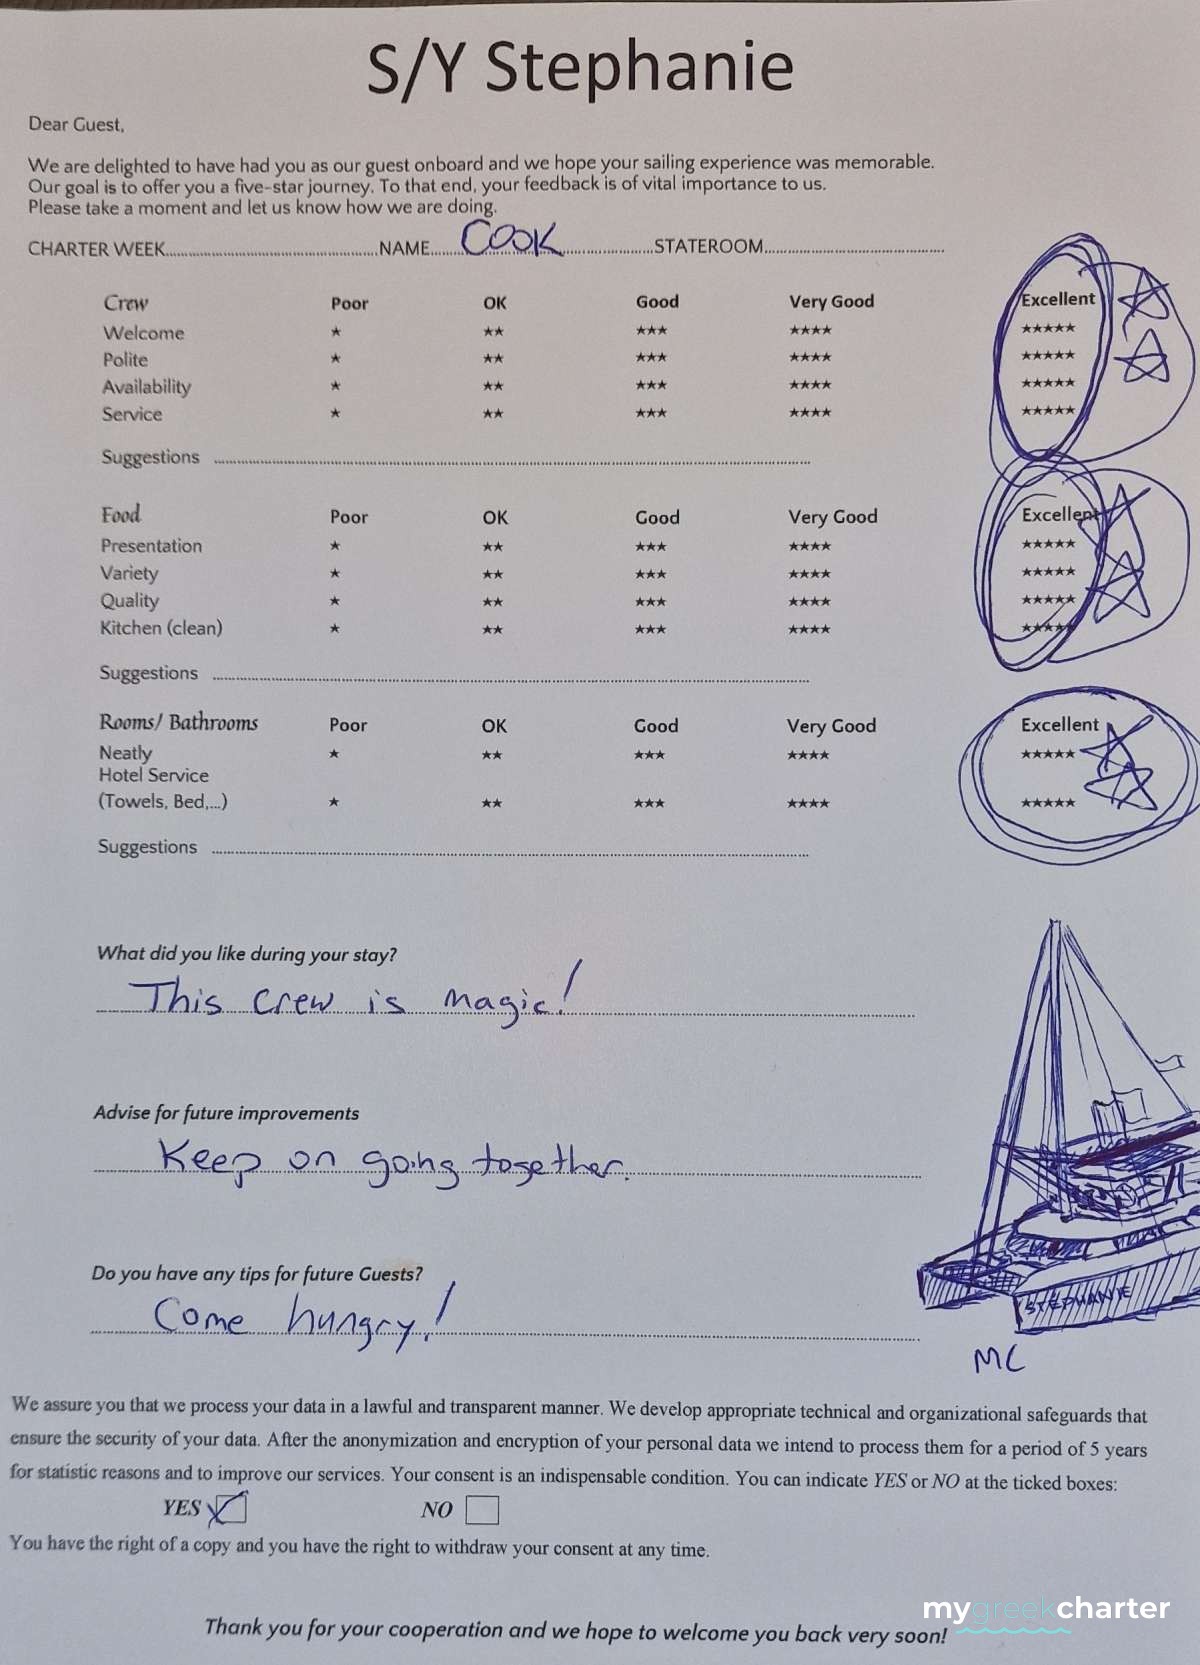 S/Y Stephanie
Dear Guest,
We are delighted to have had you as our guest onboard and we hope your sailing experience was memorable.
Our goal is to offer you a five-star journey. To that end, your feedback is of vital importance to us.
Please take a moment and let us know how we are doing.
CHARTER WEEK.......................NAME.......COOK.......................STATEROOM.......................
Crew Poor OK Good Very Good Excellent
Welcome ★ ★★ ★★★ ★★★★ ★★★★★
Polite ★ ★★ ★★★ ★★★★ ★★★★★
Availability ★ ★★ ★★★ ★★★★ ★★★★★
Service ★ ★★ ★★★ ★★★★ ★★★★★
Suggestions
Food Poor OK Good Very Good Excellent
Presentation ★ ★★ ★★★ ★★★★ ★★★★★
Variety ★ ★★ ★★★ ★★★★ ★★★★★
Quality ★ ★★ ★★★ ★★★★ ★★★★★
Kitchen (clean) ★ ★★ ★★★ ★★★★ ★★★★★
Suggestions
Rooms/ Bathrooms Poor OK Good Very Good Excellent
Neatly ★ ★★ ★★★ ★★★★ ★★★★★
Hotel Service
(Towels, Bed,...) ★ ★★ ★★★ ★★★★ ★★★★★
Suggestions
What did you like during your stay?
This crew is magic!
Advise for future improvements
Keep on going together.
Do you have any tips for future Guests?
Come hungry!
STEPHANIE
MC
We assure you that we process your data in a lawful and transparent manner. We develop appropriate technical and organizational safeguards that
ensure the security of your data. After the anonymization and encryption of your personal data we intend to process them for a period of 5 years
for statistic reasons and to improve our services. Your consent is an indispensable condition. You can indicate YES or NO at the ticked boxes:
YES NO
You have the right of a copy and you have the right to withdraw your consent at any time.
mygreekcharter
Thank you for your cooperation and we hope to welcome you back very soon!